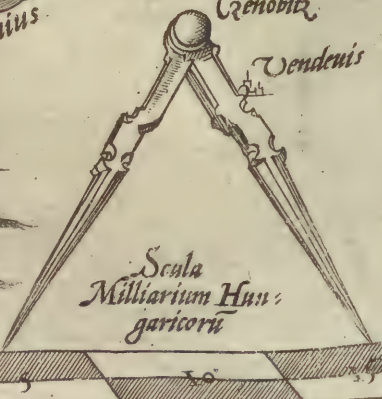 nius
Czenobitz
Vendeuis
Scala
Milliarium Hun:
garicorū
5
10
15